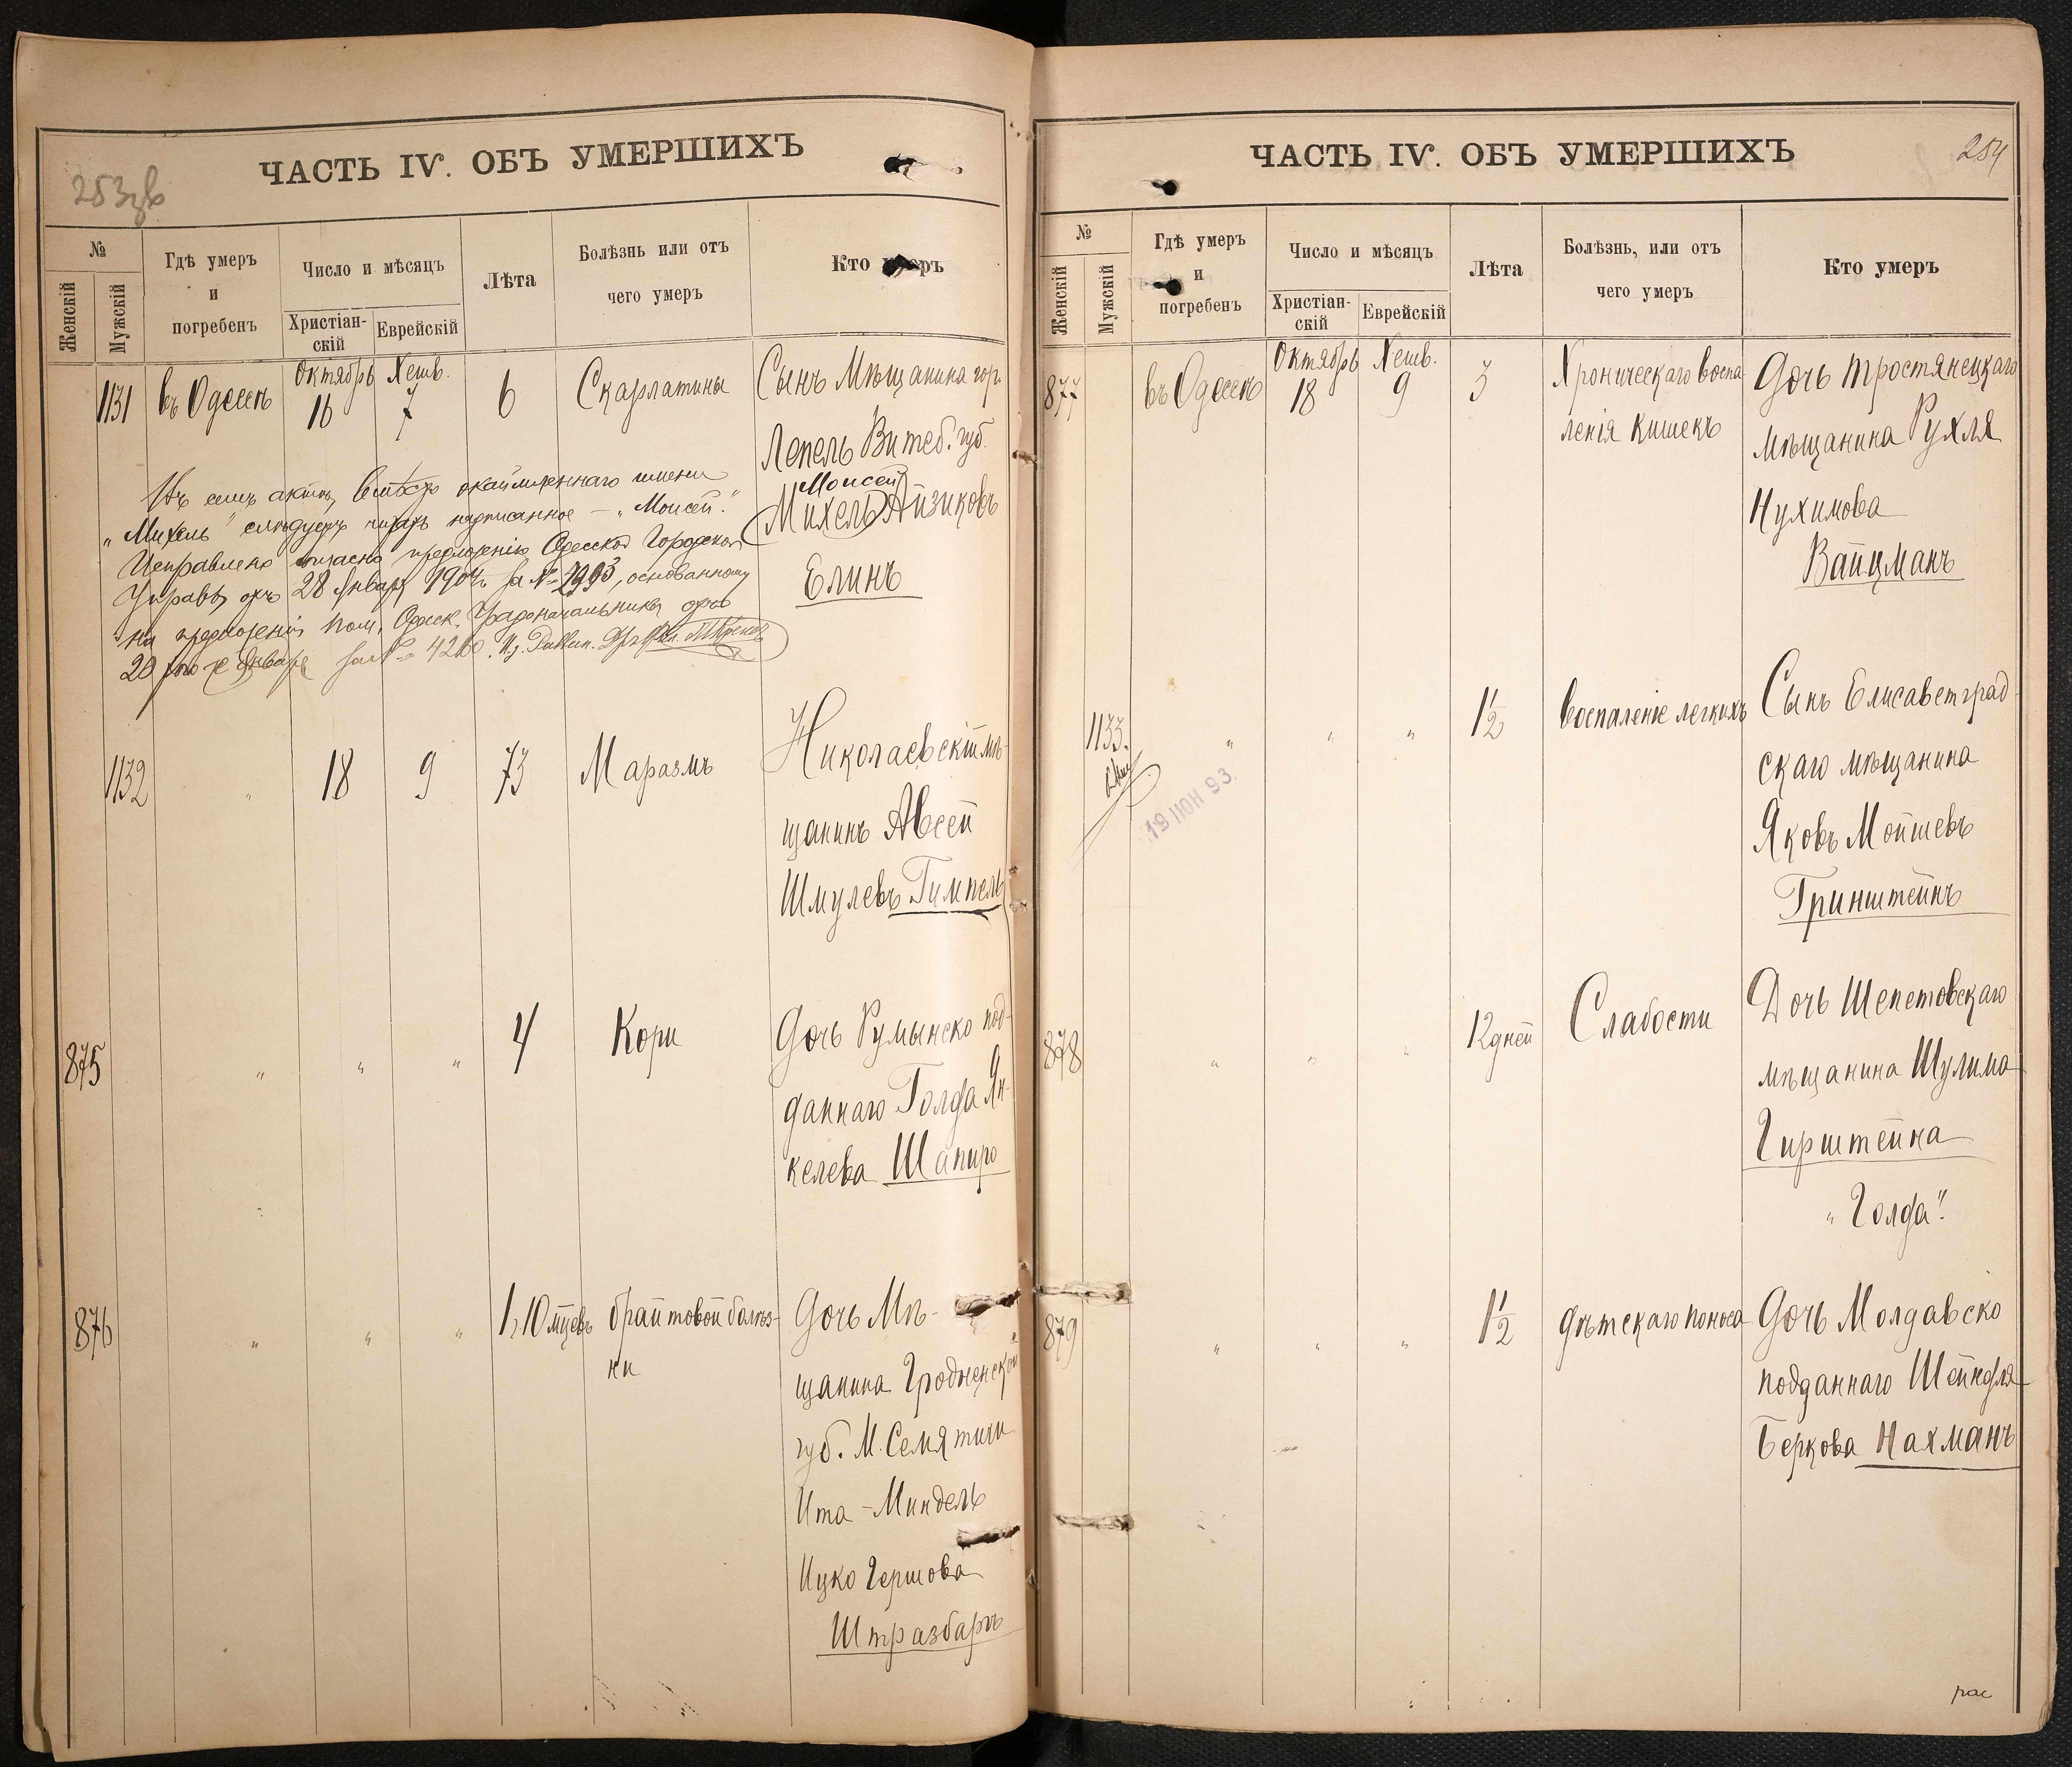 ЧАСТЬ IV. ОБЪ УМЕРШИХЪ
253зв
№
Женскій
Мужскій
Гдѣ умеръ
и
погребенъ
Число и мѣсяцъ
Христіан-
скій
Еврейскій
Лѣта
Болѣзнь или отъ
чего умеръ
Кто
1131
въ Одессѣ
Октябрь
16
Хешв.
7
6
Скарлатины
Сынъ Мѣщанина гор.
Лепель Витеб. губ.
Моисей
Михель Айзиковъ
Елинъ
Въ семъ актѣ, вмѣсто окаймленнаго имени
„Михель" слѣдуетъ читать надписанное – „Моисей".
Исправлено согласно предложенію Одесской Городской
Управы отъ 28 Января 1904 г. за №2993, основанному
на предложеніи Пом. Одесск. Градоначальника отъ
20 Января за № 4260.
1132
"
18
9
73
Маразмъ
Николаевскій мѣ-
щанинъ Авсей
Шмулевъ Гимпель
875
"
"
"
4
Кори
Дочь Румынско под-
даннаго Голда Ян-
келева Шапиро
876
"
"
"
1 г. 10 мцевъ
брайтовой болѣз-
ни
Дочь Мѣ-
щанина Гродненской
губ. М. Семятичи
Ита-Миндель
Ицко Гершова
Штразбаргъ
ЧАСТЬ IV. ОБЪ УМЕРШИХЪ
254
№
Женскій
Мужскій
Гдѣ умеръ
и
погребенъ
Число и мѣсяцъ
Христіан-
скій
Еврейскій
Лѣта
Болѣзнь, или отъ
чего умеръ
Кто умеръ
877
въ Одессѣ
Октябрь
18
Хешв.
9
3
Хроническаго воспа
ленія кишекъ
Дочь Тростянецкаго
мѣщанина Рухля
Нухимова
Вайцманъ
1133.
19 ІЮН 93.
"
"
"
1½
воспаленіе легкихъ
Сынъ Елисаветград-
скаго мѣщанина
Яковъ Мойшевъ
Гринштейнъ
878
"
"
"
12 дней
Слабости
Дочь Шепетовскаго
мѣщанина Шулима
Гирштейна
„Голда".
879
"
"
"
1½
дѣтскаго поноса
Дочь Молдавско
подданнаго Шейндля
Беркова Нахманъ
рас